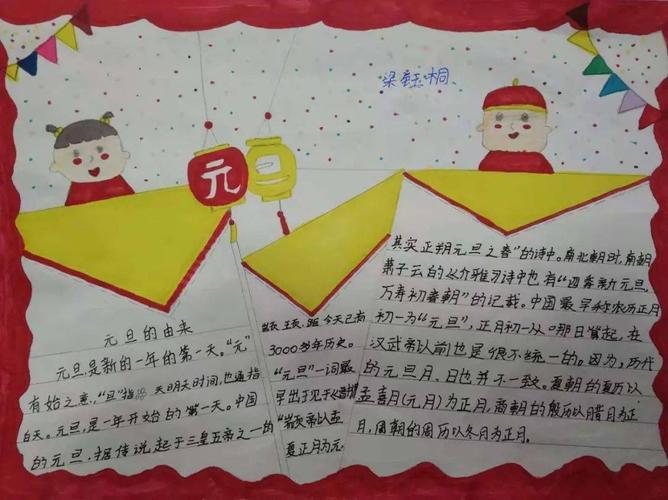 梁钰桐
元旦
元旦的由来
元旦是新的一年的第一天。“元”
有始之意，“旦”指 天明天时间，也通指
白天。元旦，是一年开始的第一天。中国
的元旦，据传说起于三皇五帝之一的
距今天已有
3000多年历史。
“元旦”一词最
早出于见于
夏正月为元，
其实正朔元旦之春”的诗中。南北朝时，南朝
萧子云的 雅 诗中也有“四 新元旦
万寿初春朝”的记载。中国最早称农历正月
初一为“元旦”，正月初一从 那日 起，在
汉武帝以前也是很不统一的。因为，历代
的元旦月、日也并不一致。夏朝的夏历以
孟喜月（元月）为正月，商朝的殷历以腊月为正
月，周朝的周历以冬月为正月。